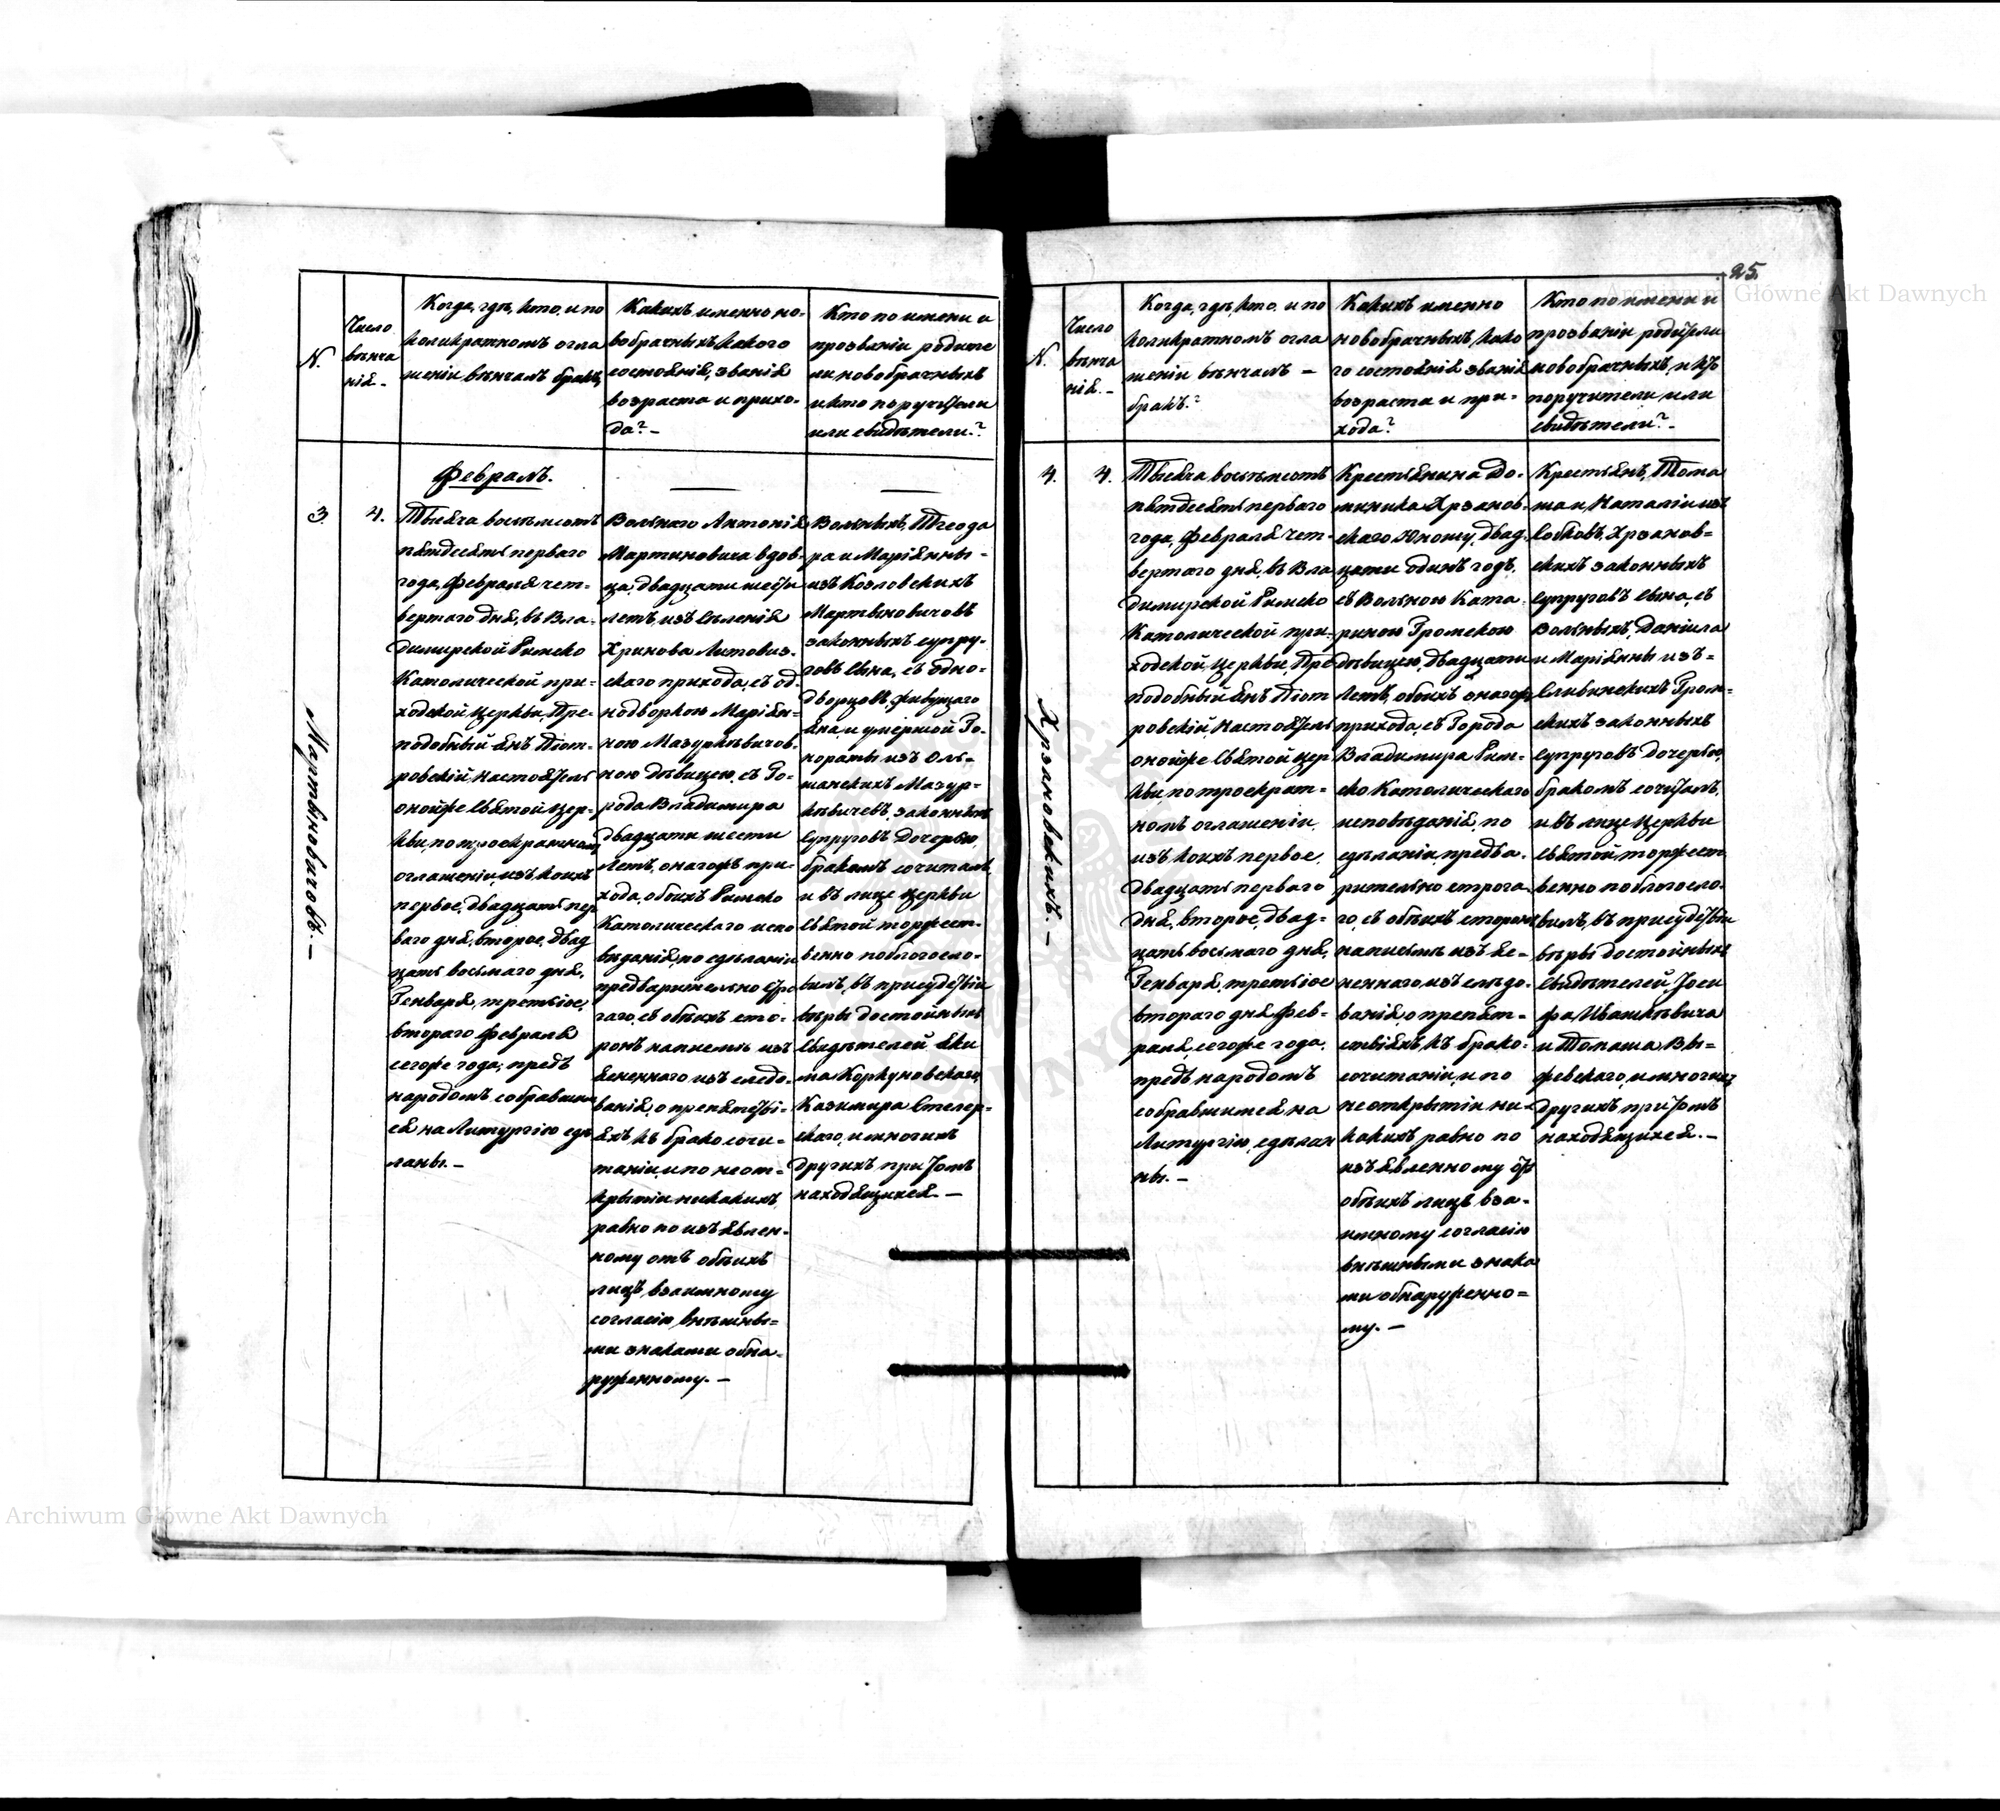 N.
Число
вѣнча
нія.-
Когда, гдѣ, кто, и по
коликратномъ огла
шеніи вѣнчалъ бракъ,
Какихъ именно но-
вобрачныхъ, какого
состоянія, званія
возраста и прихо-
да?-
Кто по имени и
прозваніи родите
ли новобрачныхъ
и кто поручители
или свидѣтели.?
Февраль.
3.
4.
Мартыновичовъ.-
Тысяча восемьсотъ
пятдесятъ перваго
года, Февраля чет-
вертаго дня, въ Вла-
димирской Римско
Католической при-
ходской Церкви, Пре-
подобный Янъ Піот-
ровскій Настоятель
онойже Святой Цер-
кви, по троекратномъ
оглашеніи, изъ коихъ
первое, двадцать пер
ваго дня, второе, двад
цать восьмаго дня,
Генваря, третьіое,
втораго Февраля
сегоже года, предъ
народомъ собравшим
ся на Литургію сдѣ
ланы.-
Вольнаго Антонія
Мартиновича вдов-
ца, двадцати шести
летъ, изъ Селенія
Хринова Литовиз-
скаго прихода, съ од-
нодворкою Маріян-
ною Мазуркѣвичов-
ною дѣвицею, съ Го-
рода Владимира
двадцати шести
летъ, онагожъ при-
хода, обоихъ Римско
Католическаго испо
вѣданія, по сдѣланіи
предварительно стро
гаго, съ обѣихъ сто-
ронъ написмѣ изъ
ясненнаго изъ слѣдо-
ванія, о препятстві-
яхъ къ бракосочи-
таніи, и по неот-
крытіи никакихъ,
равно по изъявлен-
ному отъ обѣихъ
лицъ, взаимному
согласію, внѣшны-
ми знаками обна-
руженному.-
Вольныхъ, Теодо
ра и Маріянны-
изъ Козловскихъ
Мартыновичовъ
законныхъ супру-
говъ Сына, съ одно-
дворцовъ, живущаго
Яна, и умершой Го-
нораты изъ Оль-
шанскихъ Мазур-
кѣвичевъ, законныхъ
Супруговъ Дочерью,
бракомъ сочиталъ,
и въ лице Церкви
Святой торжест-
венно поблогосло-
вилъ, въ присудствіи
вѣры достойныхъ
Свидѣтелей Яки
ма Коркуновскаго,
Казимира Стелер-
скаго, и многихъ
другихъ при томъ
находящихся.-
25.
N.
Число
вѣнча
нія.-
Когда, гдѣ, кто, и по
коликратномъ огла
шеніи вѣнчалъ -
бракъ.?
Какихъ именно
новобрачныхъ, како
го состоянія званія
возраста и при-
хода?
Кто по имени и
прозваніи родители
новобрачныхъ, и кто
поручители или
свидѣтели?-
4.
4.
Хрзановскихъ.-
Тысяча восемьсотъ
пятдесятъ перваго
года, Февраля чет-
вертаго дня, въ Вла
димирской Римско
Католической при-
ходской Церкви, Пре
подобный Янъ Піот
ровскій, Настоятель
онойже Святой Цер
кви, по троекрат-
номъ оглашеніи,
изъ коихъ первое,
двадцать перваго
дня, второе, двад-
цать восьмаго дня,
Генваря, третьіое
втораго дня, Фев-
раля, сегоже года,
предъ народомъ
собравшимся на
Литургію, сдѣлан
ны.-
Крестьянина До-
миника Хрзанов-
скаго Юношу, двад
цати одинъ годъ,
съ Вольною Ката
риною Громскою
дѣвицею, двадцати
летъ, обоихъ онагожъ
прихода, съ Города
Владимира Рим-
ско Католическаго
исповѣданія, по
сдѣланіи, предва-
рительно строга
го, съ обѣихъ сторонъ
написмѣ изъяс-
неннаго, изъ слѣдо-
ванія, о препят-
ствіяхъ, къ брако-
сочитаніи, и по
неоткрытіи ни-
какихъ равно по
изъявленному отъ
обѣихъ лицъ вза-
имному согласію
внѣшными знака
ми обнаруженно=
му.-
Крестьянъ, Тома
ша и Наталіи изъ
Собковъ, Хрзанов=
скихъ законныхъ
Супруговъ Сына, съ
Вольныхъ, Даніила
и Маріянны изъ=
Сливинскихъ Гром-
скихъ законныхъ
Супруговъ Дочерью,
бракомъ сочиталъ,
и въ лице Церкви
Святой, торжест
венно поблогосло-
вилъ, въ присудствіи
вѣры достойныхъ
Свидѣтелей, Іоси
фа Ивашкѣвича
и Томаша Вы=
жевскаго, и многихъ
другихъ при томъ
находящихся.-
Archiwum Główne Akt Dawnych
Archiwum Główne Akt Dawnych